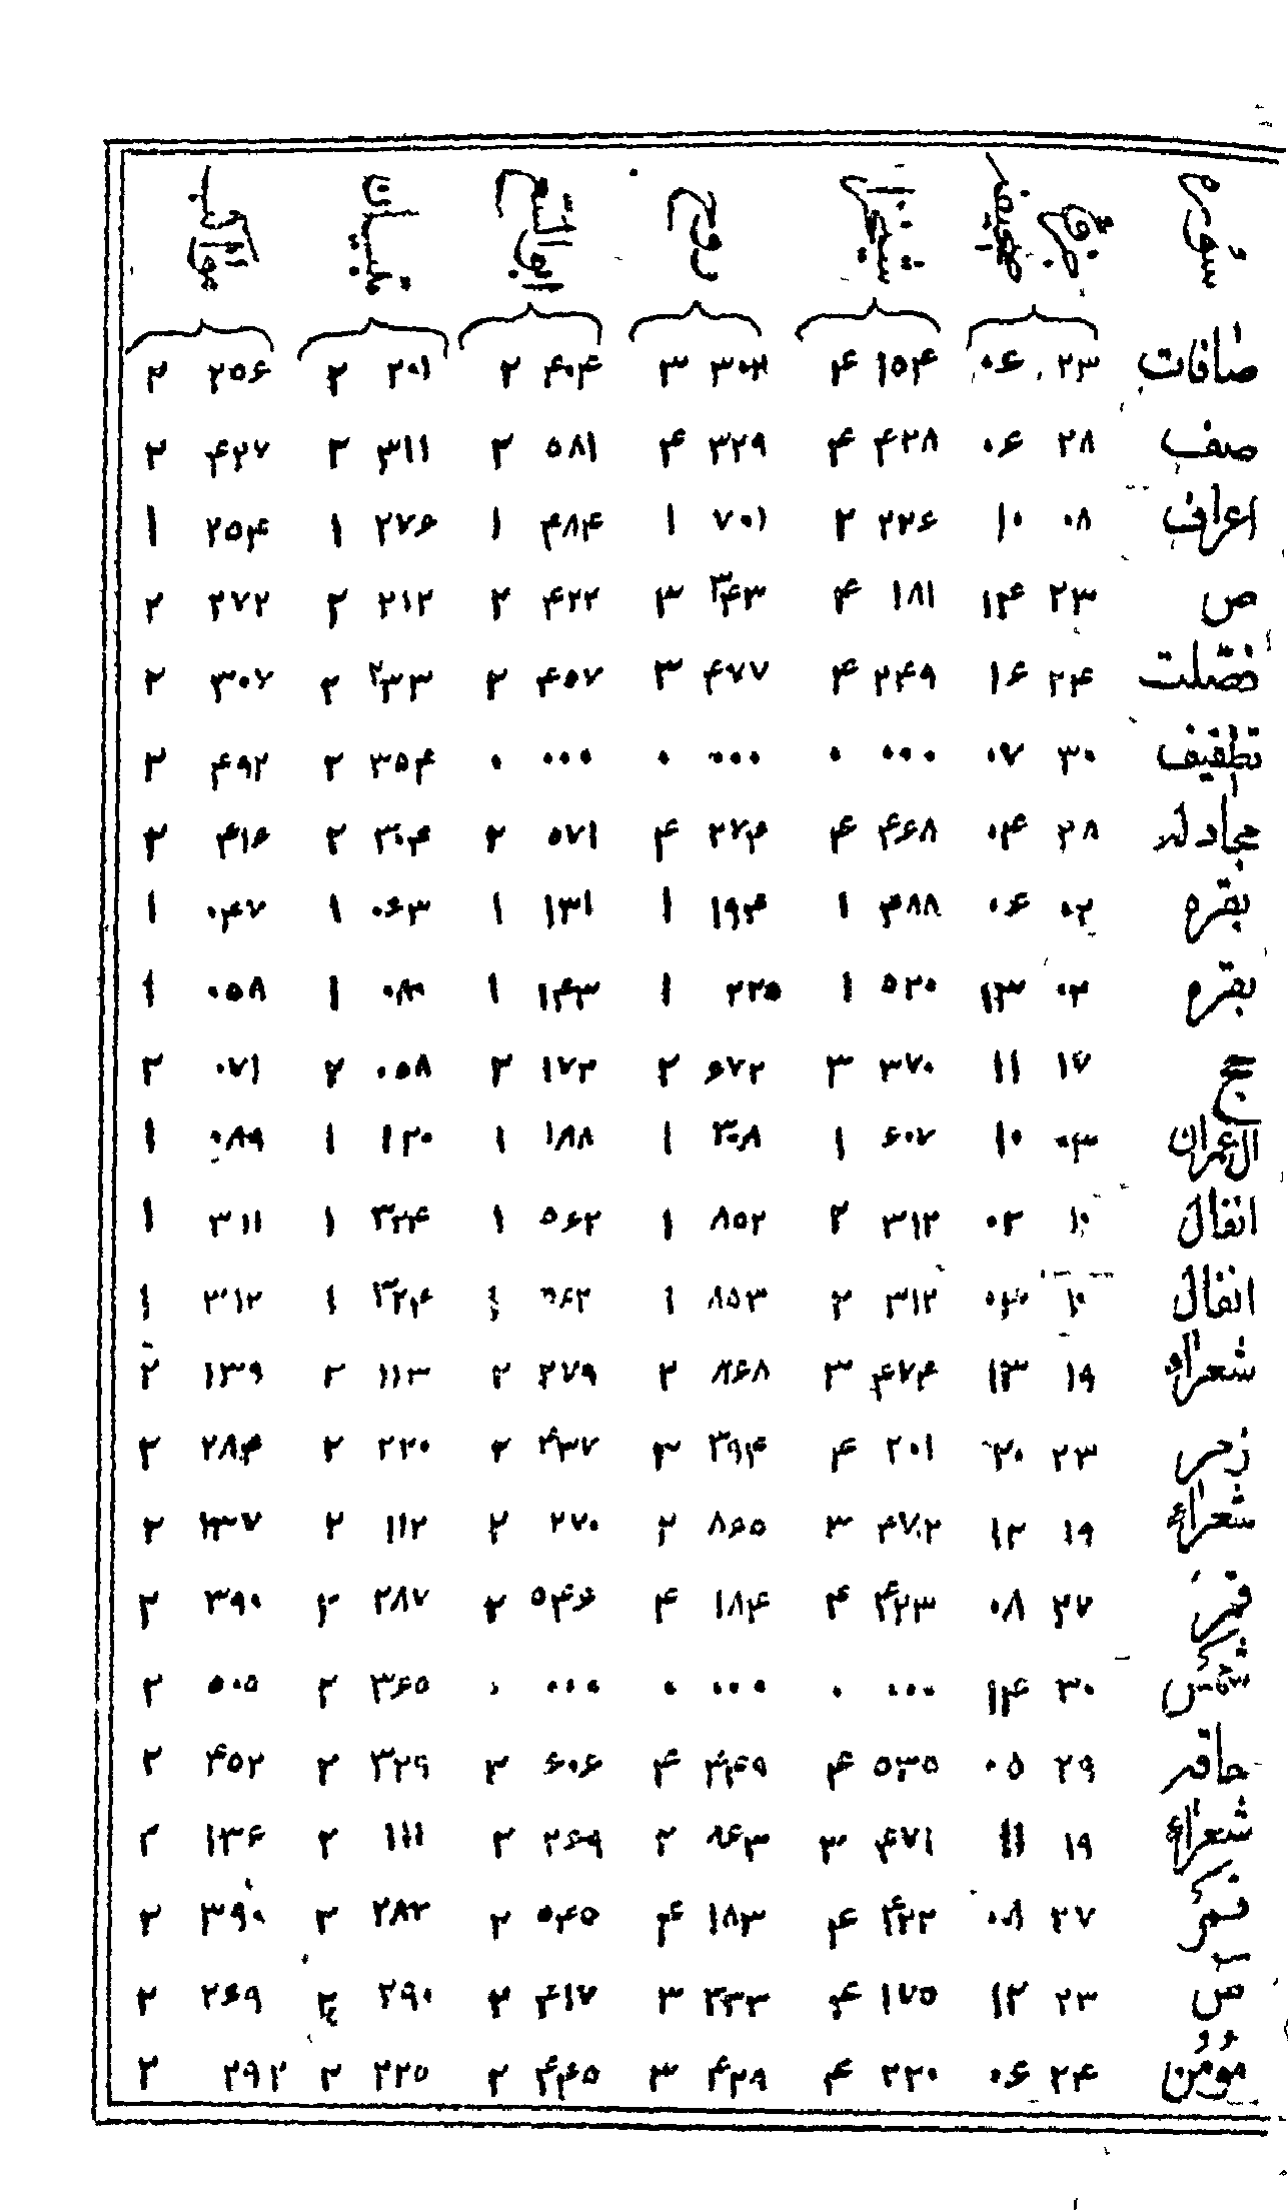 صافات ۲۳ ۰۶ ۱۵۴ ۴ ۳۰۲ ۳ ۴۰۴ ۲ ۲۰۱ ۲ ۲۵۶ ۲
صف ۲۸ ۰۶ ۴۲۸ ۴ ۳۲۹ ۴ ۵۸۱ ۲ ۳۱۱ ۲ ۴۲۷ ۲
اعراف ۰۸ ۱۰ ۲۲۶ ۲ ۷۰۱ ۱ ۴۸۴ ۱ ۲۷۶ ۱ ۲۵۴ ۱
ص ۲۳ ۱۴ ۱۸۱ ۴ ۳۴۳ ۳ ۴۲۲ ۲ ۲۱۲ ۲ ۲۷۲ ۲
فصّلت ۲۴ ۱۶ ۲۴۹ ۴ ۴۷۷ ۳ ۴۵۷ ۲ ۲۳۳ ۲ ۳۰۷ ۲
تطفیف ۳۰ ۰۷ ۰۰۰ ۰ ۰۰۰ ۰ ۰۰۰ ۰ ۳۵۴ ۲ ۴۹۲ ۲
مجادله ۲۸ ۰۴ ۴۶۸ ۴ ۲۷۴ ۴ ۵۷۱ ۲ ۳۰۴ ۲ ۴۱۶ ۲
بقره ۰۲ ۰۶ ۴۸۸ ۱ ۱۹۴ ۱ ۱۳۱ ۱ ۰۶۳ ۱ ۰۴۷ ۱
بقره ۰۲ ۱۳ ۵۲۰ ۱ ۲۲۵ ۱ ۱۴۳ ۱ ۱ ۰۵۸ ۱
حج ۱۷ ۱۱ ۳۷۰ ۳ ۶۷۲ ۲ ۱۷۳ ۲ ۰۵۸ ۲ ۰۷۱ ۲
ال عمران ۰۳ ۱۰ ۶۰۷ ۱ ۳۰۸ ۱ ۱۸۸ ۱ ۱۲۰ ۱ ۰۸۹ ۱
انفال ۱۰ ۰۲ ۳۱۲ ۲ ۸۵۲ ۱ ۵۶۲ ۱ ۳۲۴ ۱ ۳۱۱ ۱
انفال ۱۰ ۰۴ ۳۱۲ ۲ ۸۵۳ ۱ ۵۶۲ ۱ ۳۲۴ ۱ ۳۱۲ ۱
شعراء ۱۹ ۱۳ ۴۷۴ ۳ ۸۶۸ ۲ ۲۷۹ ۲ ۱۱۳ ۲ ۱۳۹ ۲
زمر ۲۳ ۲۰ ۲۰۱ ۴ ۳۹۴ ۳ ۴۳۷ ۲ ۲۲۰ ۲ ۲۸۴ ۲
شعراء ۱۹ ۱۲ ۴۷۲ ۳ ۸۶۵ ۲ ۲۷۰ ۲ ۱۱۲ ۲ ۱۳۷ ۲
قمر ۲۷ ۰۸ ۴۲۳ ۴ ۱۸۴ ۴ ۵۴۶ ۲ ۲۸۷ ۲ ۳۹۰ ۲
شمس ۳۰ ۱۴ ۰۰۰ ۰ ۰۰۰ ۰ ۰۰۰ ۰ ۳۶۵ ۲ ۵۰۵ ۲
حاقه ۲۹ ۰۵ ۵۳۵ ۴ ۴۴۹ ۴ ۶۰۶ ۲ ۳۲۹ ۲ ۴۵۲ ۲
شعراء ۱۹ ۱۱ ۴۷۱ ۳ ۸۶۳ ۲ ۲۶۹ ۲ ۱۱۱ ۲ ۱۳۶ ۲
قمر ۲۷ ۰۸ ۴۲۲ ۴ ۱۸۳ ۴ ۵۴۵ ۲ ۲۸۲ ۲ ۳۹۰ ۲
ص ۲۳ ۱۲ ۱۷۵ ۴ ۳۳۳ ۳ ۴۱۷ ۲ ۲۹۰ ۲ ۲۶۹ ۲
مؤمن ۲۴ ۰۶ ۲۲۰ ۴ ۴۲۹ ۳ ۴۴۵ ۲ ۲۲۵ ۲ ۲۹۲ ۲